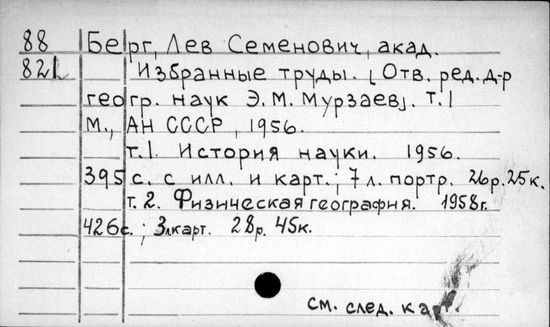 88 Берг, Лев Семенович, акад.
82L Избранные труды. [Отв. ред. д-р
геогр. наук Э. М. Мурзаев]. т. 1
М., АН СССР, 1956.
т.1. История науки. 1956.
395 с. с илл. и карт.; 7 л. портр. 26р. 25к.
т. 2. Физическая география. 1958г.
426с.; 3л карт. 28р. 45к.
см. след. карт.